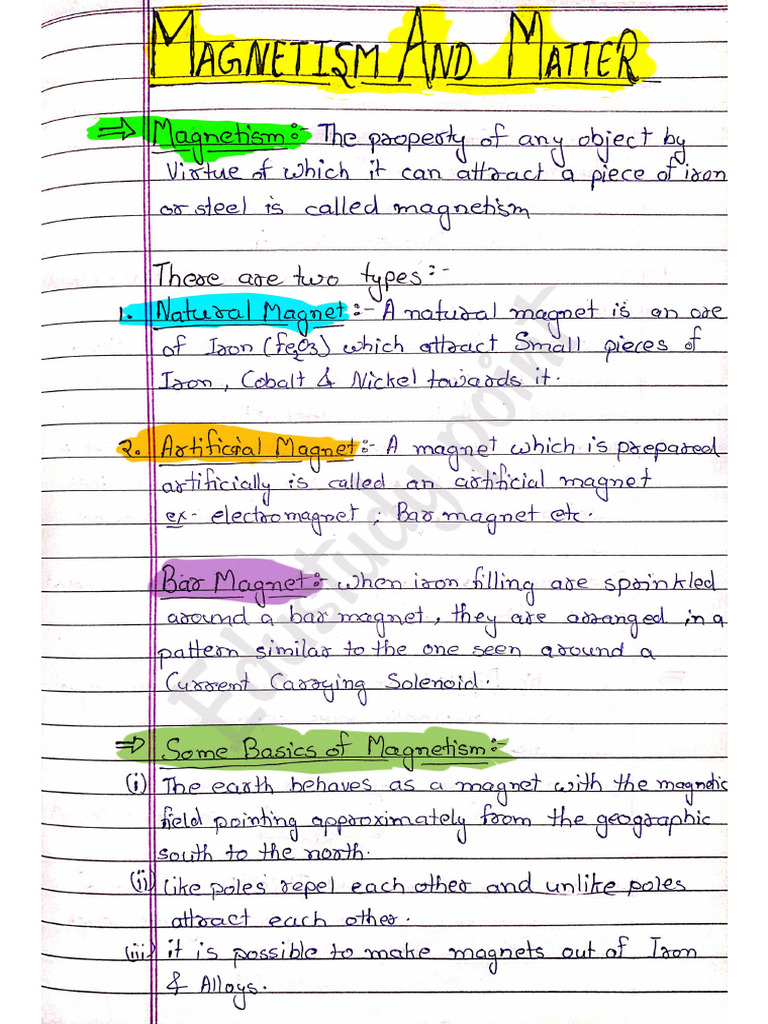 MAGNETISM AND MATTER
⇒ Magnetism:- The property of any object by
virtue of which it can attract a piece of iron
or steel is called magnetism
There are two types:-
1. Natural Magnet:- A natural magnet is an ore
of Iron (Fe2O3) which attract Small pieces of
Iron, Cobalt & Nickel towards it.
2. Artificial Magnet:- A magnet which is prepared
artificially is called an artificial magnet
ex- electromagnet, Bar magnet etc.
Bar Magnet:- when iron filling are sprinkled
around a bar magnet, they are arranged in a
pattern similar to the one seen around a
Current Carrying Solenoid.
⇒ Some Basics of Magnetism:-
(i) The earth behaves as a magnet with the magnetic
field pointing approximately from the geographic
south to the north.
(ii) Like poles repel each other and unlike poles
attract each other.
(iii) it is possible to make magnets out of Iron
& Alloys.
Edustudy point